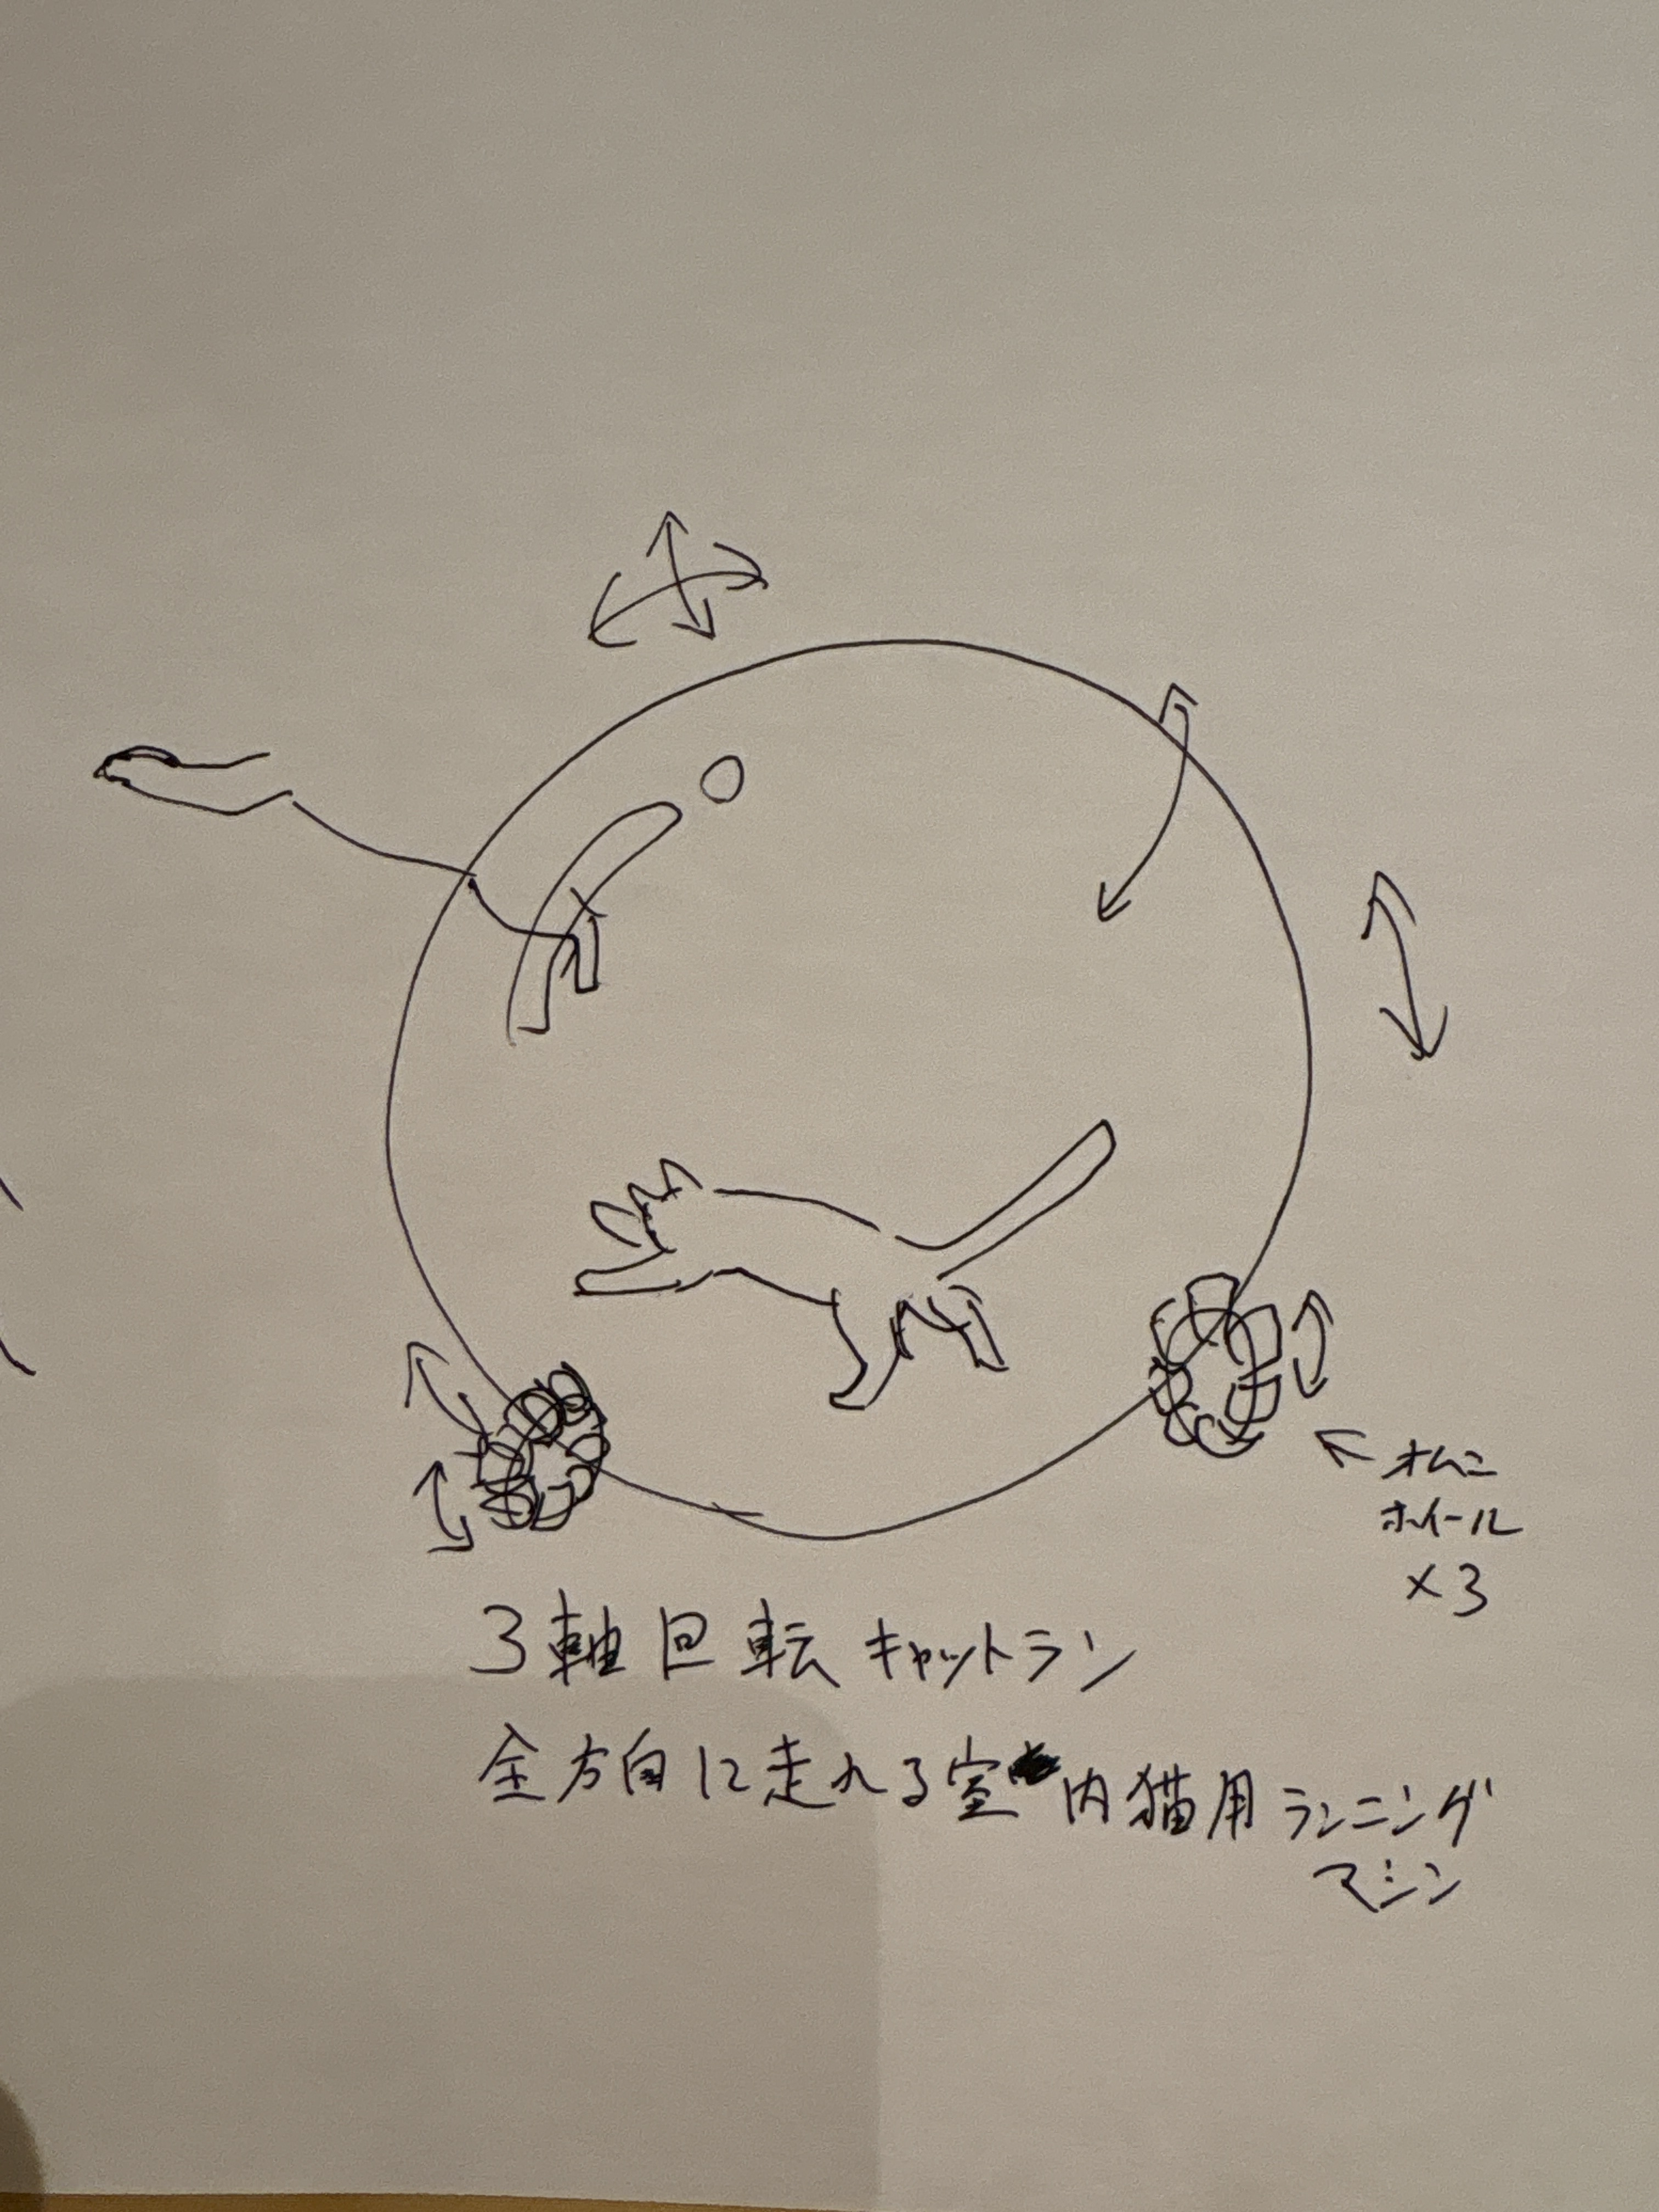 オムニ
ホイール
×3
3軸回転キャットラン
全方向に走れる室内猫用ランニング
マシン